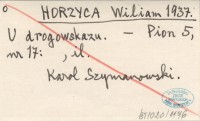 o HORZYCA Wiliam 1937.
U drogowskazu. – Pion 5,
nr 17: , il.
Karol Szymanowski.